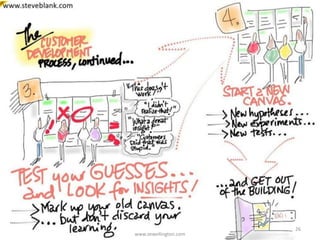 www.steveblank.com
The
CUSTOMER
DEVELOPMENT
PROCESS, continued...
3.
"This doesn't
work!"
"I didn't
realize that!"
"What a great
insight!"
"Customers
said that was
stupid."
TEST your GUESSES...
and Look for INSIGHTS!
> Mark up your old canvas.
> ... but don't discard your
learning.
4.
START a NEW
CANVAS.
> New hypotheses...
> New experiments...
> New tests...
...and GET OUT
OF the BUILDING!
26